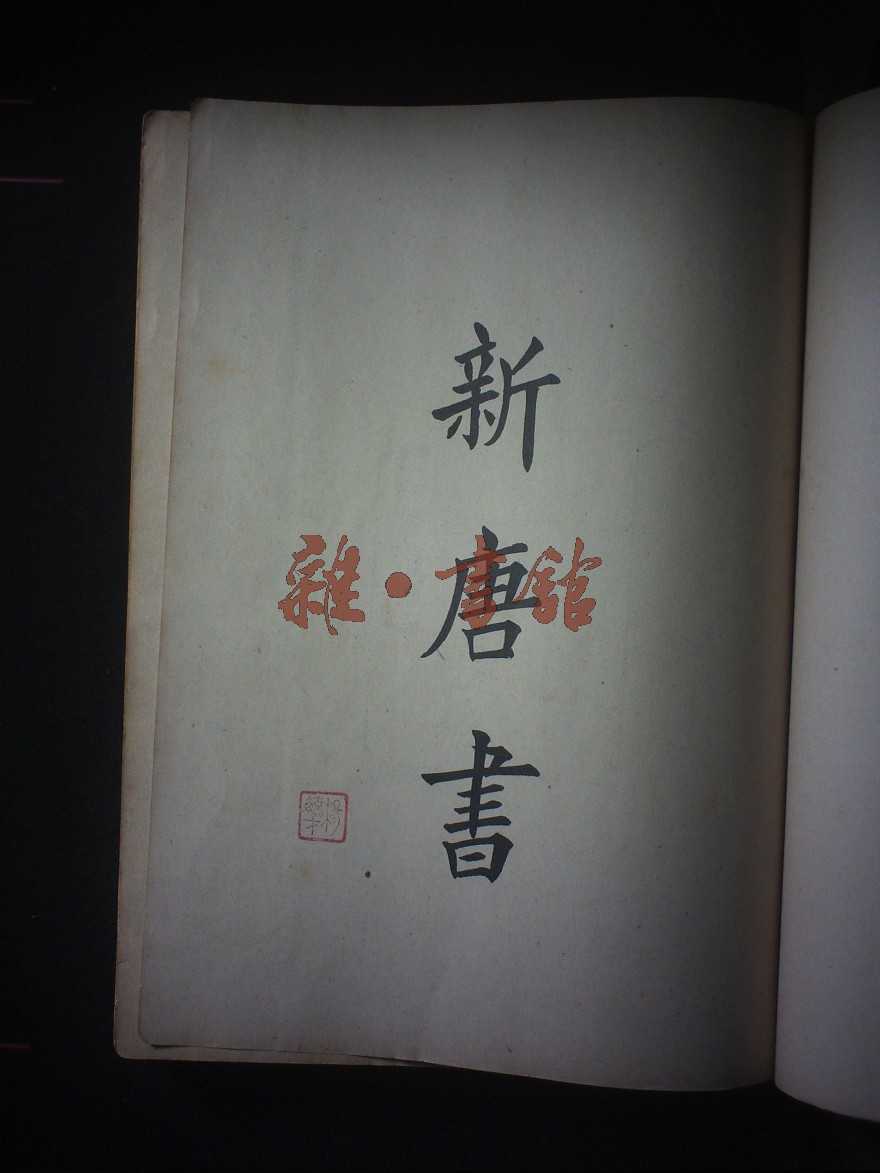 新唐書
雜·書館